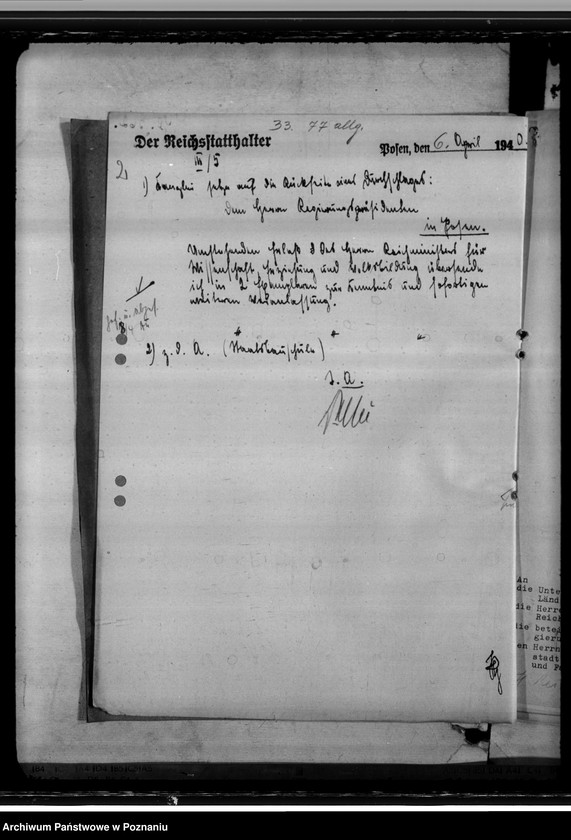 33. 77 allg.
Der Reichsstatthalter
Posen, den 6. April 1940.
III/5
2,
1) Kanzlei setze auf die Rückseite eines Durchschlages:
Dem Herrn Regierungspräsidenten
in Posen.
Umstehenden Erlaß d des Herrn Reichsminister für
Wissenschaft, Erziehung und Volksbildung übersende
ich in 2 Exemplaren zur Kenntnis und sofortigen
weiteren Veranlassung.
2) z. d. A. (Staatsbauschule)
I. A.
An
die Unte
Länd
die Herre
Reich
die betei
gieru
en Herrn
stadt
und P
Archiwum Państwowe w Poznaniu